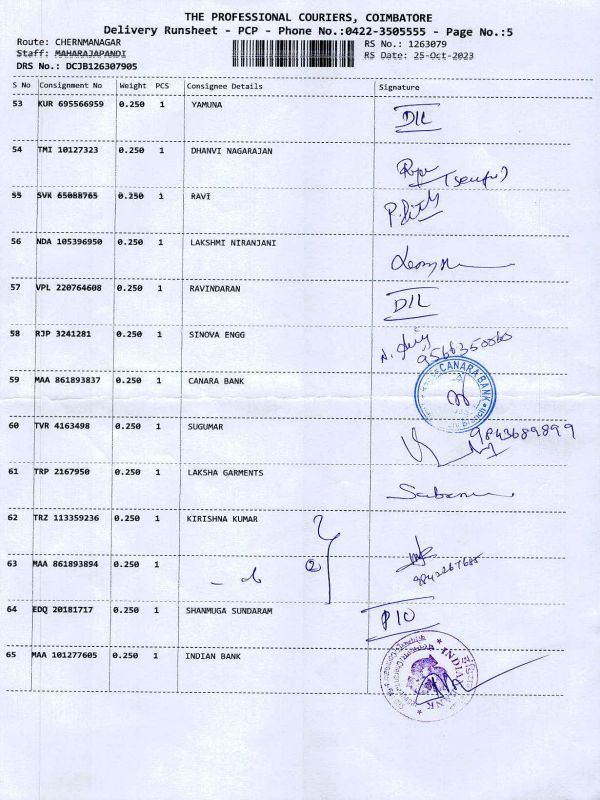 THE PROFESSIONAL COURIERS, COIMBATORE
Delivery Runsheet - PCP - Phone No.:0422-3505555 - Page No.:5
Route: CHERNMANAGAR RS No.: 1263079
Staff: MAHARAJAPANDI RS Date: 25-Oct-2023
DRS No.: DCJB126307905
S No Consignment No Weight PCS Consignee Details Signature
53 KUR 695566959 0.250 1 YAMUNA DIL
54 TMI 10127323 0.250 1 DHANVI NAGARAJAN
55 SVK 65088765 0.250 1 RAVI
56 NDA 105396950 0.250 1 LAKSHMI NIRANJANI
57 VPL 220764608 0.250 1 RAVINDARAN DIL
58 RJP 3241281 0.250 1 SINOVA ENGG
9566350060
59 MAA 861893837 0.250 1 CANARA BANK CANARA BANK
60 TVR 4163498 0.250 1 SUGUMAR 9843689899
61 TRP 2167950 0.250 1 LAKSHA GARMENTS
62 TRZ 113359236 0.250 1 KIRISHNA KUMAR
63 MAA 861893894 0.250 1 - do 2
64 EDQ 20181717 0.250 1 SHANMUGA SUNDARAM P10
65 MAA 101277605 0.250 1 INDIAN BANK INDIAN BANK